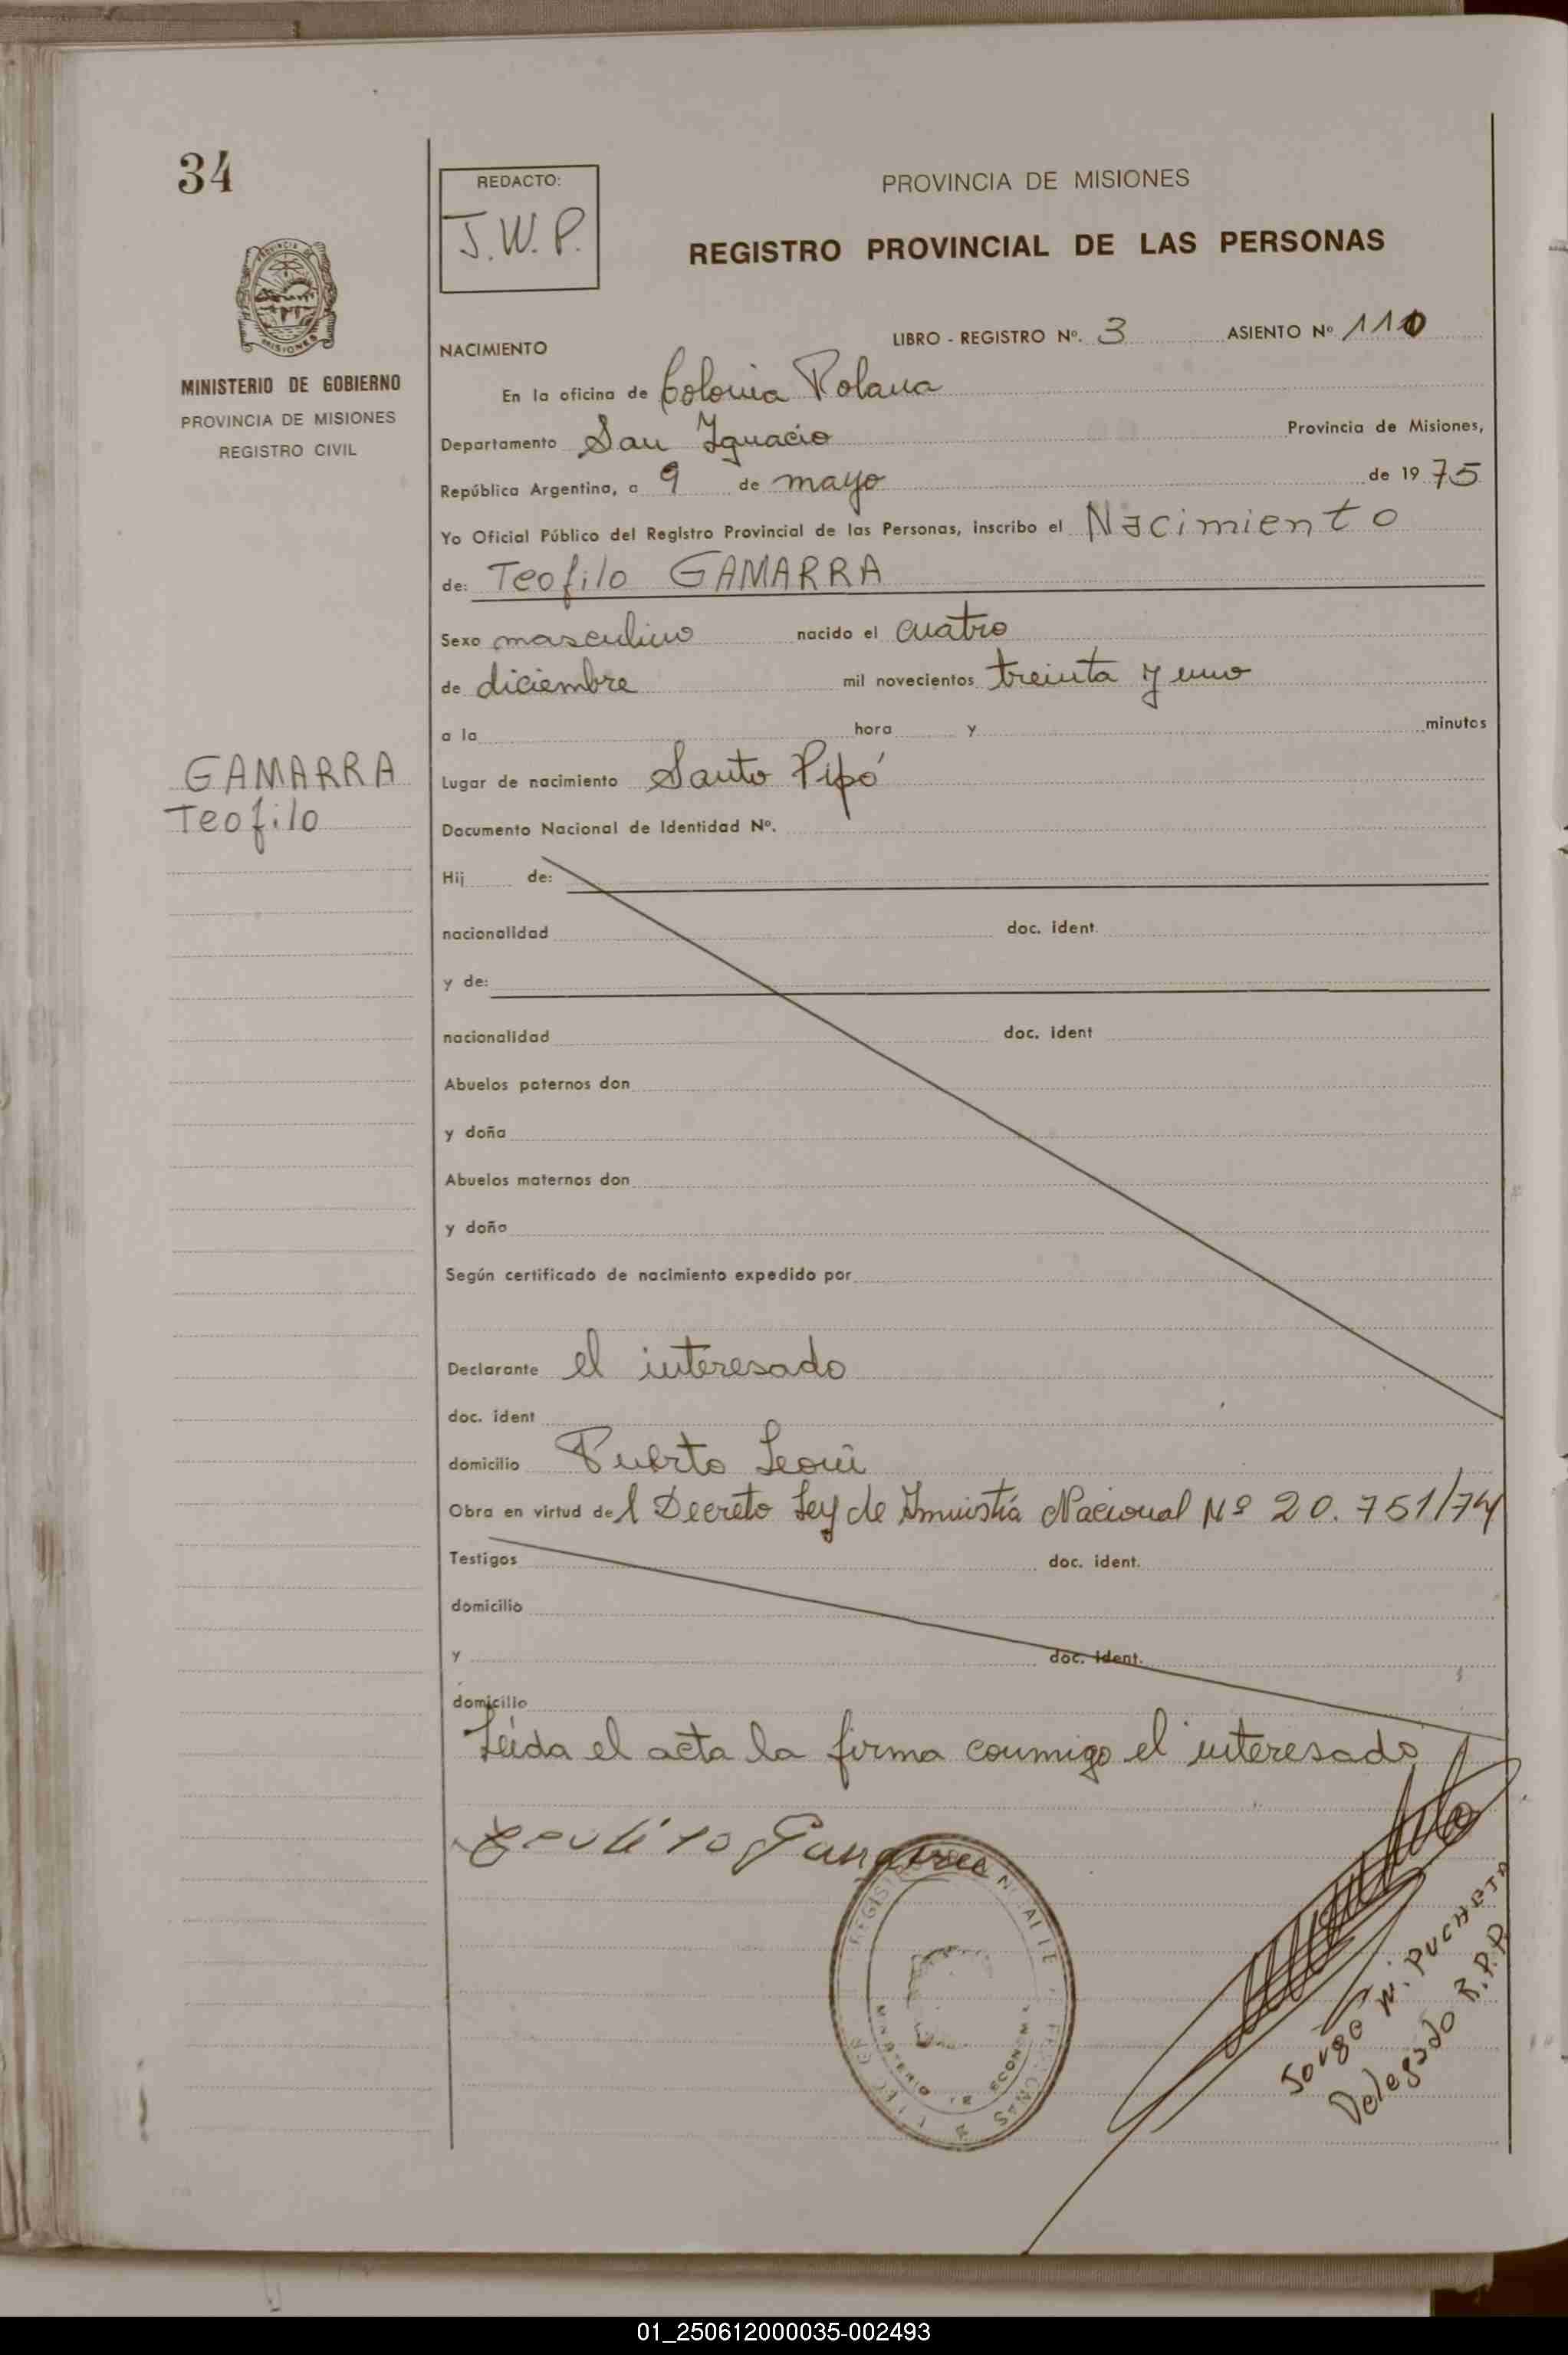 34
REDACTO:
J.W.P.
PROVINCIA DE MISIONES
REGISTRO PROVINCIAL DE LAS PERSONAS
MISIONES
MINISTERIO DE GOBIERNO
PROVINCIA DE MISIONES
REGISTRO CIVIL
NACIMIENTO LIBRO - REGISTRO Nº. 3 ASIENTO Nº 110
En la oficina de Colonia Polana
Departamento San Ignacio Provincia de Misiones,
República Argentina, a 9 de mayo de 19 75
Yo Oficial Público del Registro Provincial de las Personas, inscribo el Nacimiento
de: Teofilo GAMARRA
Sexo masculino nacido el cuatro
de diciembre mil novecientos treinta y uno
a la hora y minutos
GAMARRA
Teofilo
Lugar de nacimiento Santo Pipó
Documento Nacional de Identidad Nº.
Hij de:
nacionalidad doc. ident.
y de:
nacionalidad doc. ident
Abuelos paternos don
y doña
Abuelos maternos don
y doña
Según certificado de nacimiento expedido por
Declarante el interesado
doc. ident
domicilio Puerto Leoni
Obra en virtud del Decreto Ley de Amnistía Nacional Nº 20.751/74
Testigos doc. ident.
domicilio
y doc. ident.
domicilio
Leída el acta la firma conmigo el interesado
Jorge W. PUCHETA
Delegado R.P.P.
01_250612000035-002493